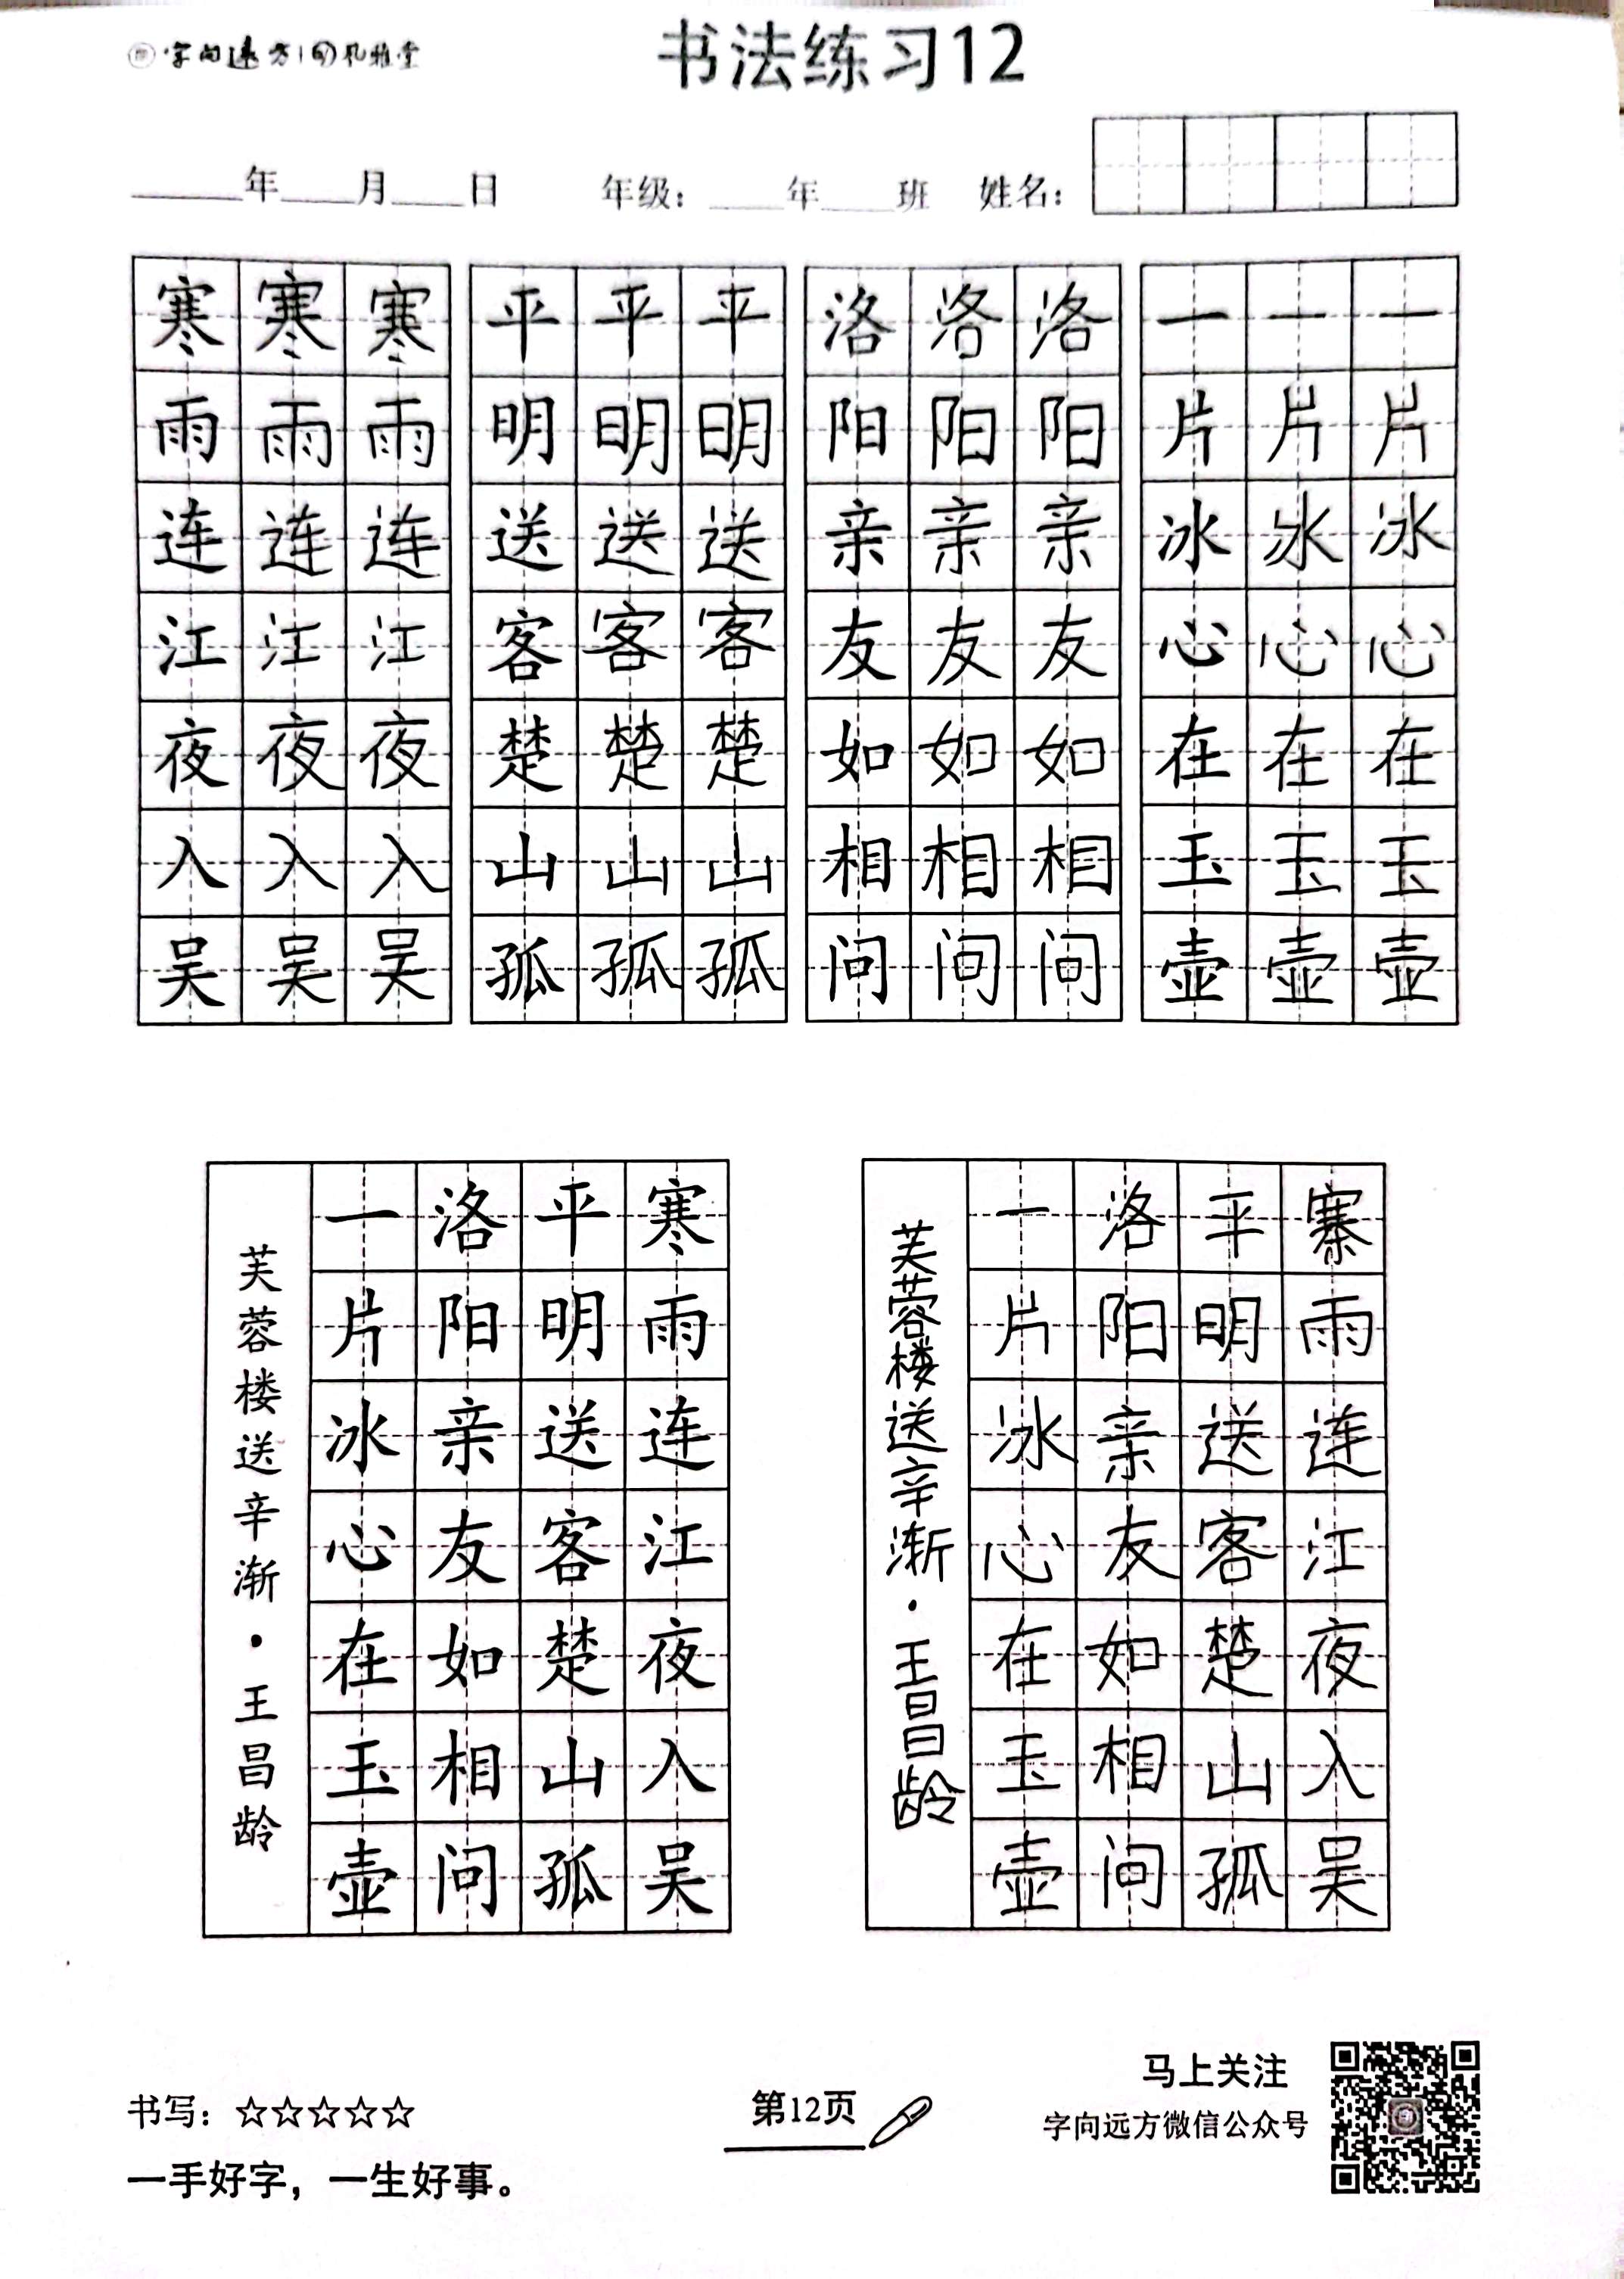 字向远方 孔雅堂
书法练习12
年 月 日 年级: 年 班 姓名:
寒雨连江夜入吴
寒雨连江夜入吴
寒雨连江夜入吴
平明送客楚山孤
平明送客楚山孤
平明送客楚山孤
洛阳亲友如相问
洛阳亲友如相问
洛阳亲友如相问
一片冰心在玉壶
一片冰心在玉壶
一片冰心在玉壶
寒雨连江夜入吴
平明送客楚山孤
洛阳亲友如相问
一片冰心在玉壶
芙蓉楼送辛渐·王昌龄
寨雨连江夜入吴
平明送客楚山孤
洛阳亲友如相问
一片冰心在玉壶
芙蓉楼送辛渐·王昌龄
书写: ☆☆☆☆☆
一手好字，一生好事。
第12页
马上关注
字向远方微信公众号